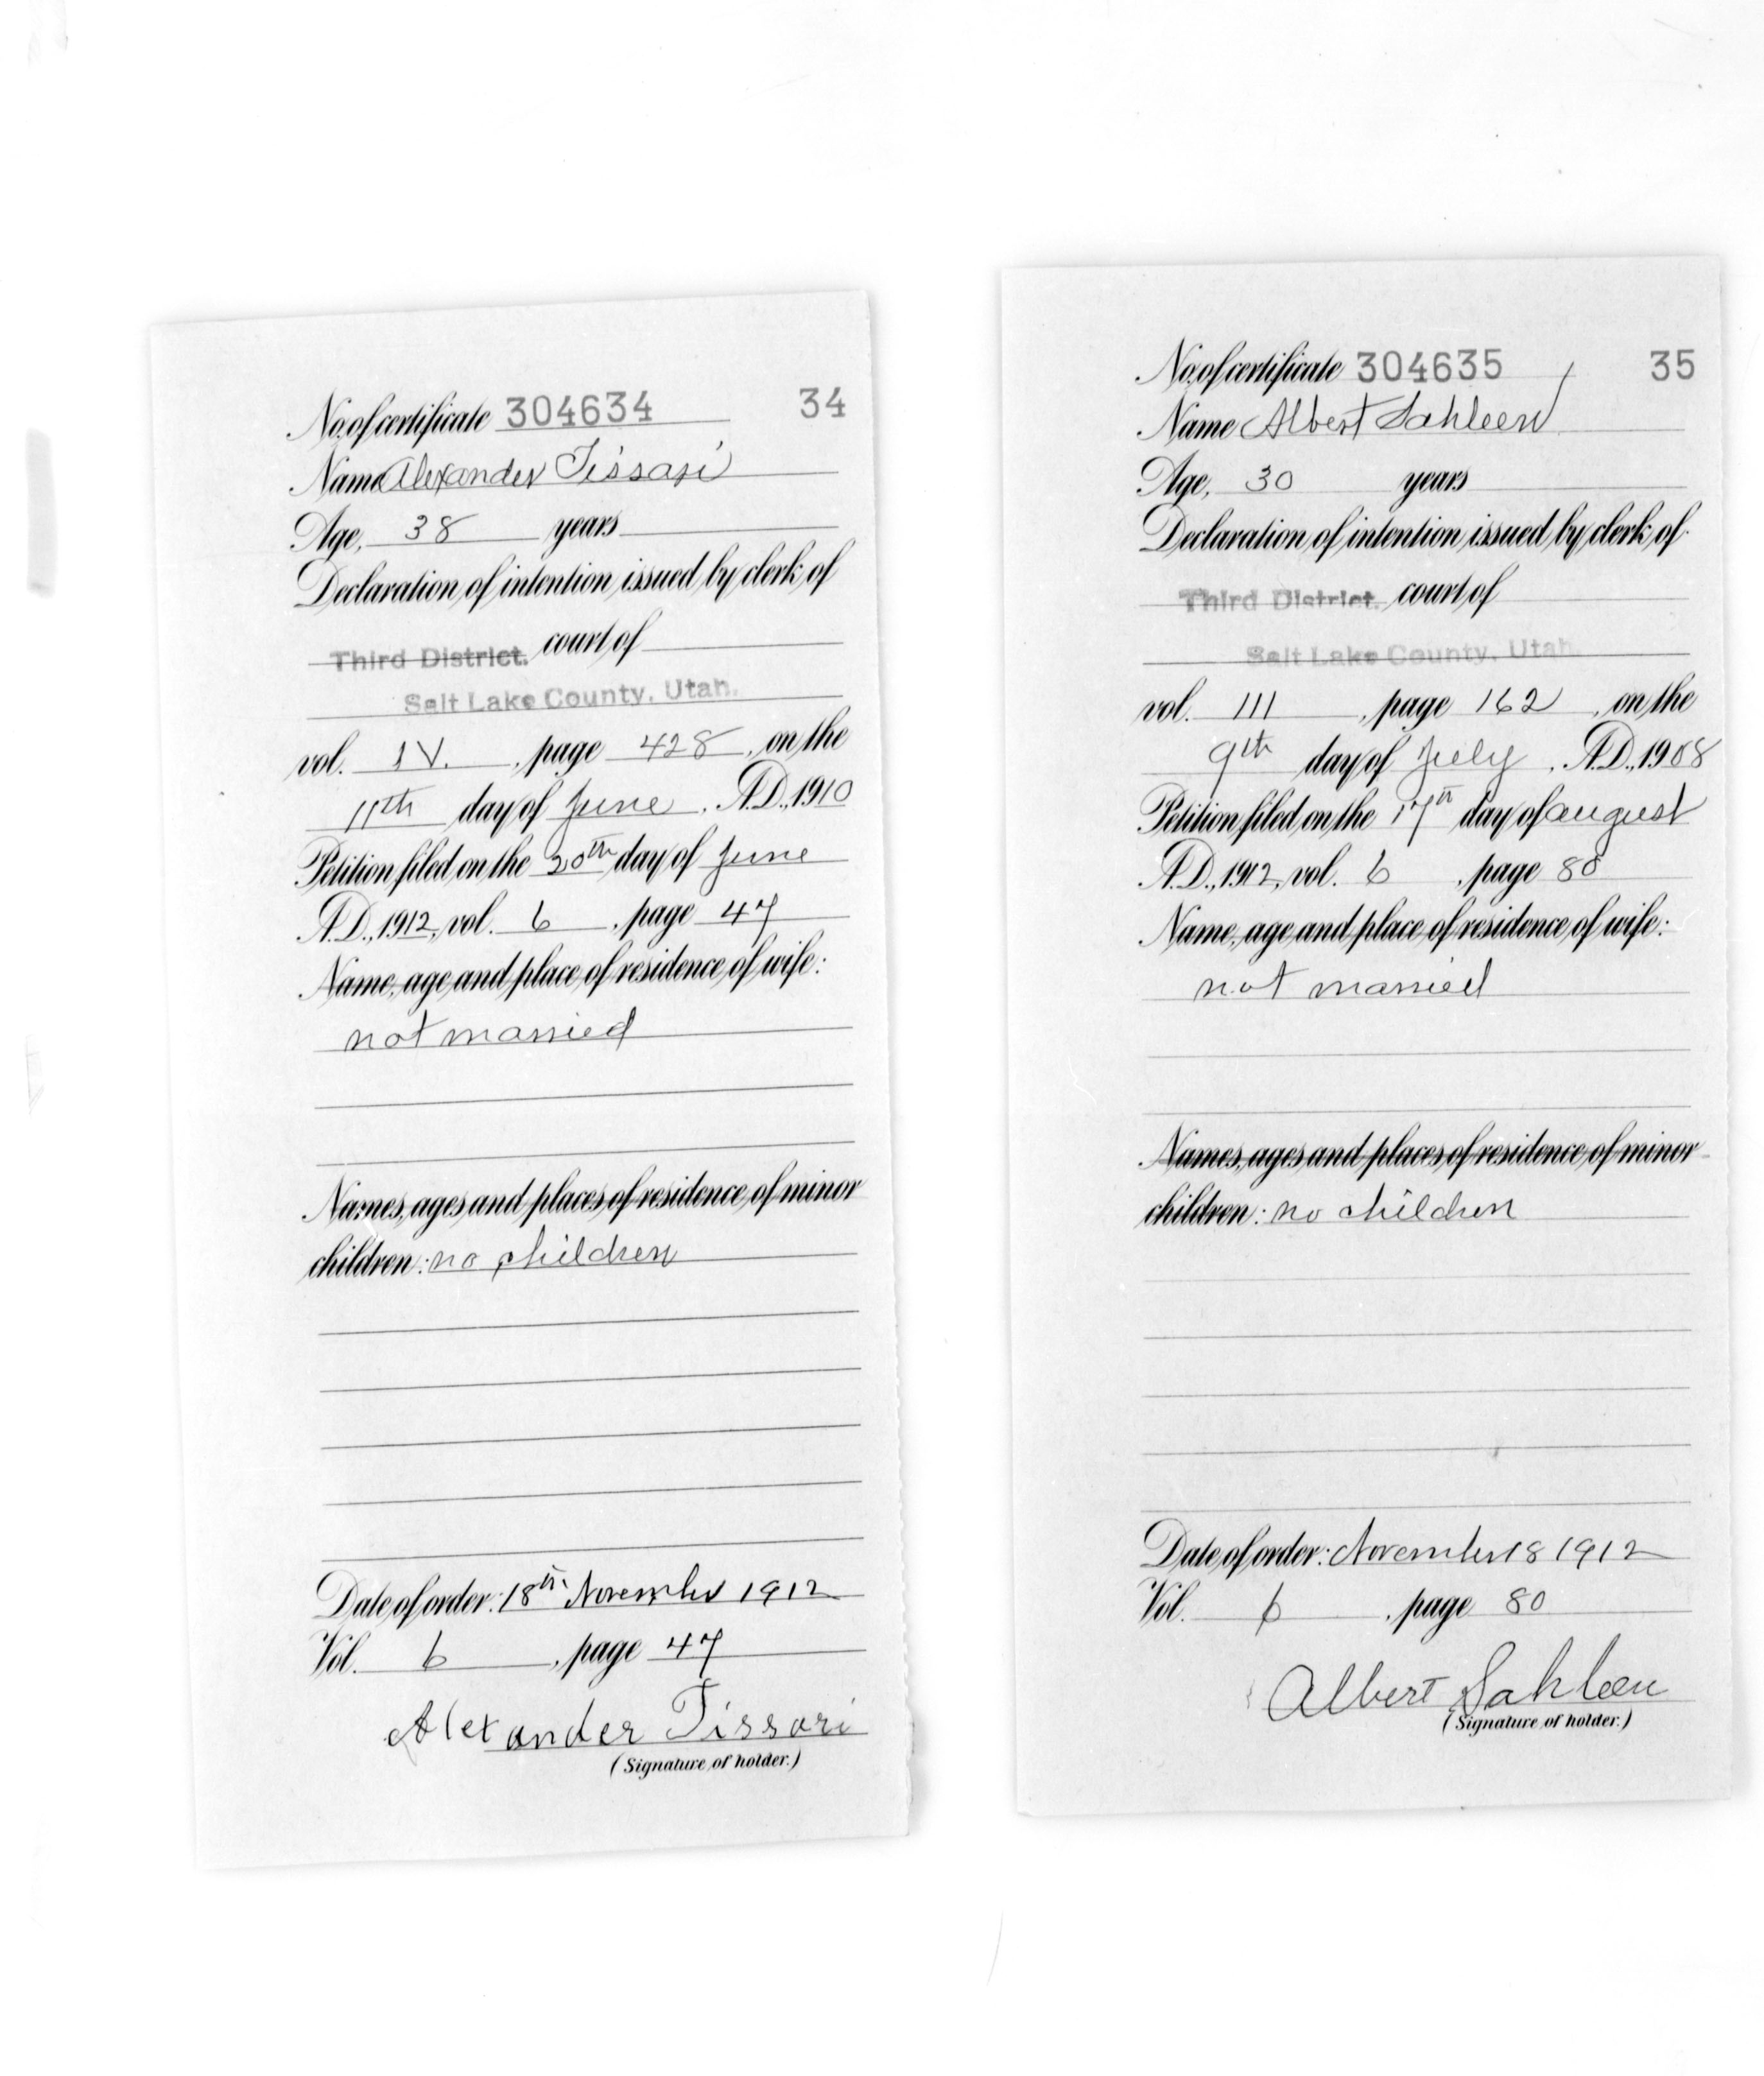 No. of certificate 304634 34
Name Alexander Tissari
Age, 38 years
Declaration of intention issued by clerk of
Third District. court of
Salt Lake County, Utah.
vol. IV. , page 428 , on the
11th day of June , A.D., 1910
Petition filed on the 20th day of June
A.D., 1912, vol. 6 , page 47
Name, age and place of residence of wife:
not married
Names, ages and places of residence of minor
children: no children
Date of order: 18th November 1912
Vol. 6 , page 47
Alexander Tissari
(Signature of holder.)
No. of certificate 304635 35
Name Albert Sahleen
Age, 30 years
Declaration of intention issued by clerk of
Third District. court of
Salt Lake County, Utah.
vol. III , page 162 , on the
9th day of July , A.D., 1908
Petition filed on the 17th day of august
A.D., 1912, vol. 6 , page 80
Name, age and place of residence of wife:
not married
Names, ages and places of residence of minor
children: no children
Date of order: November 18 1912
Vol. 6 , page 80
Albert Sahleen
(Signature of holder.)